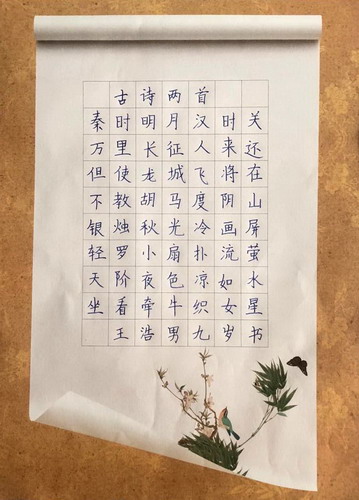 古诗两首
秦时明月汉时关
万里长征人未还
但使龙城飞将在
不教胡马度阴山
银烛秋光冷画屏
轻罗小扇扑流萤
天阶夜色凉如水
坐看牵牛织女星
王浩男九岁书